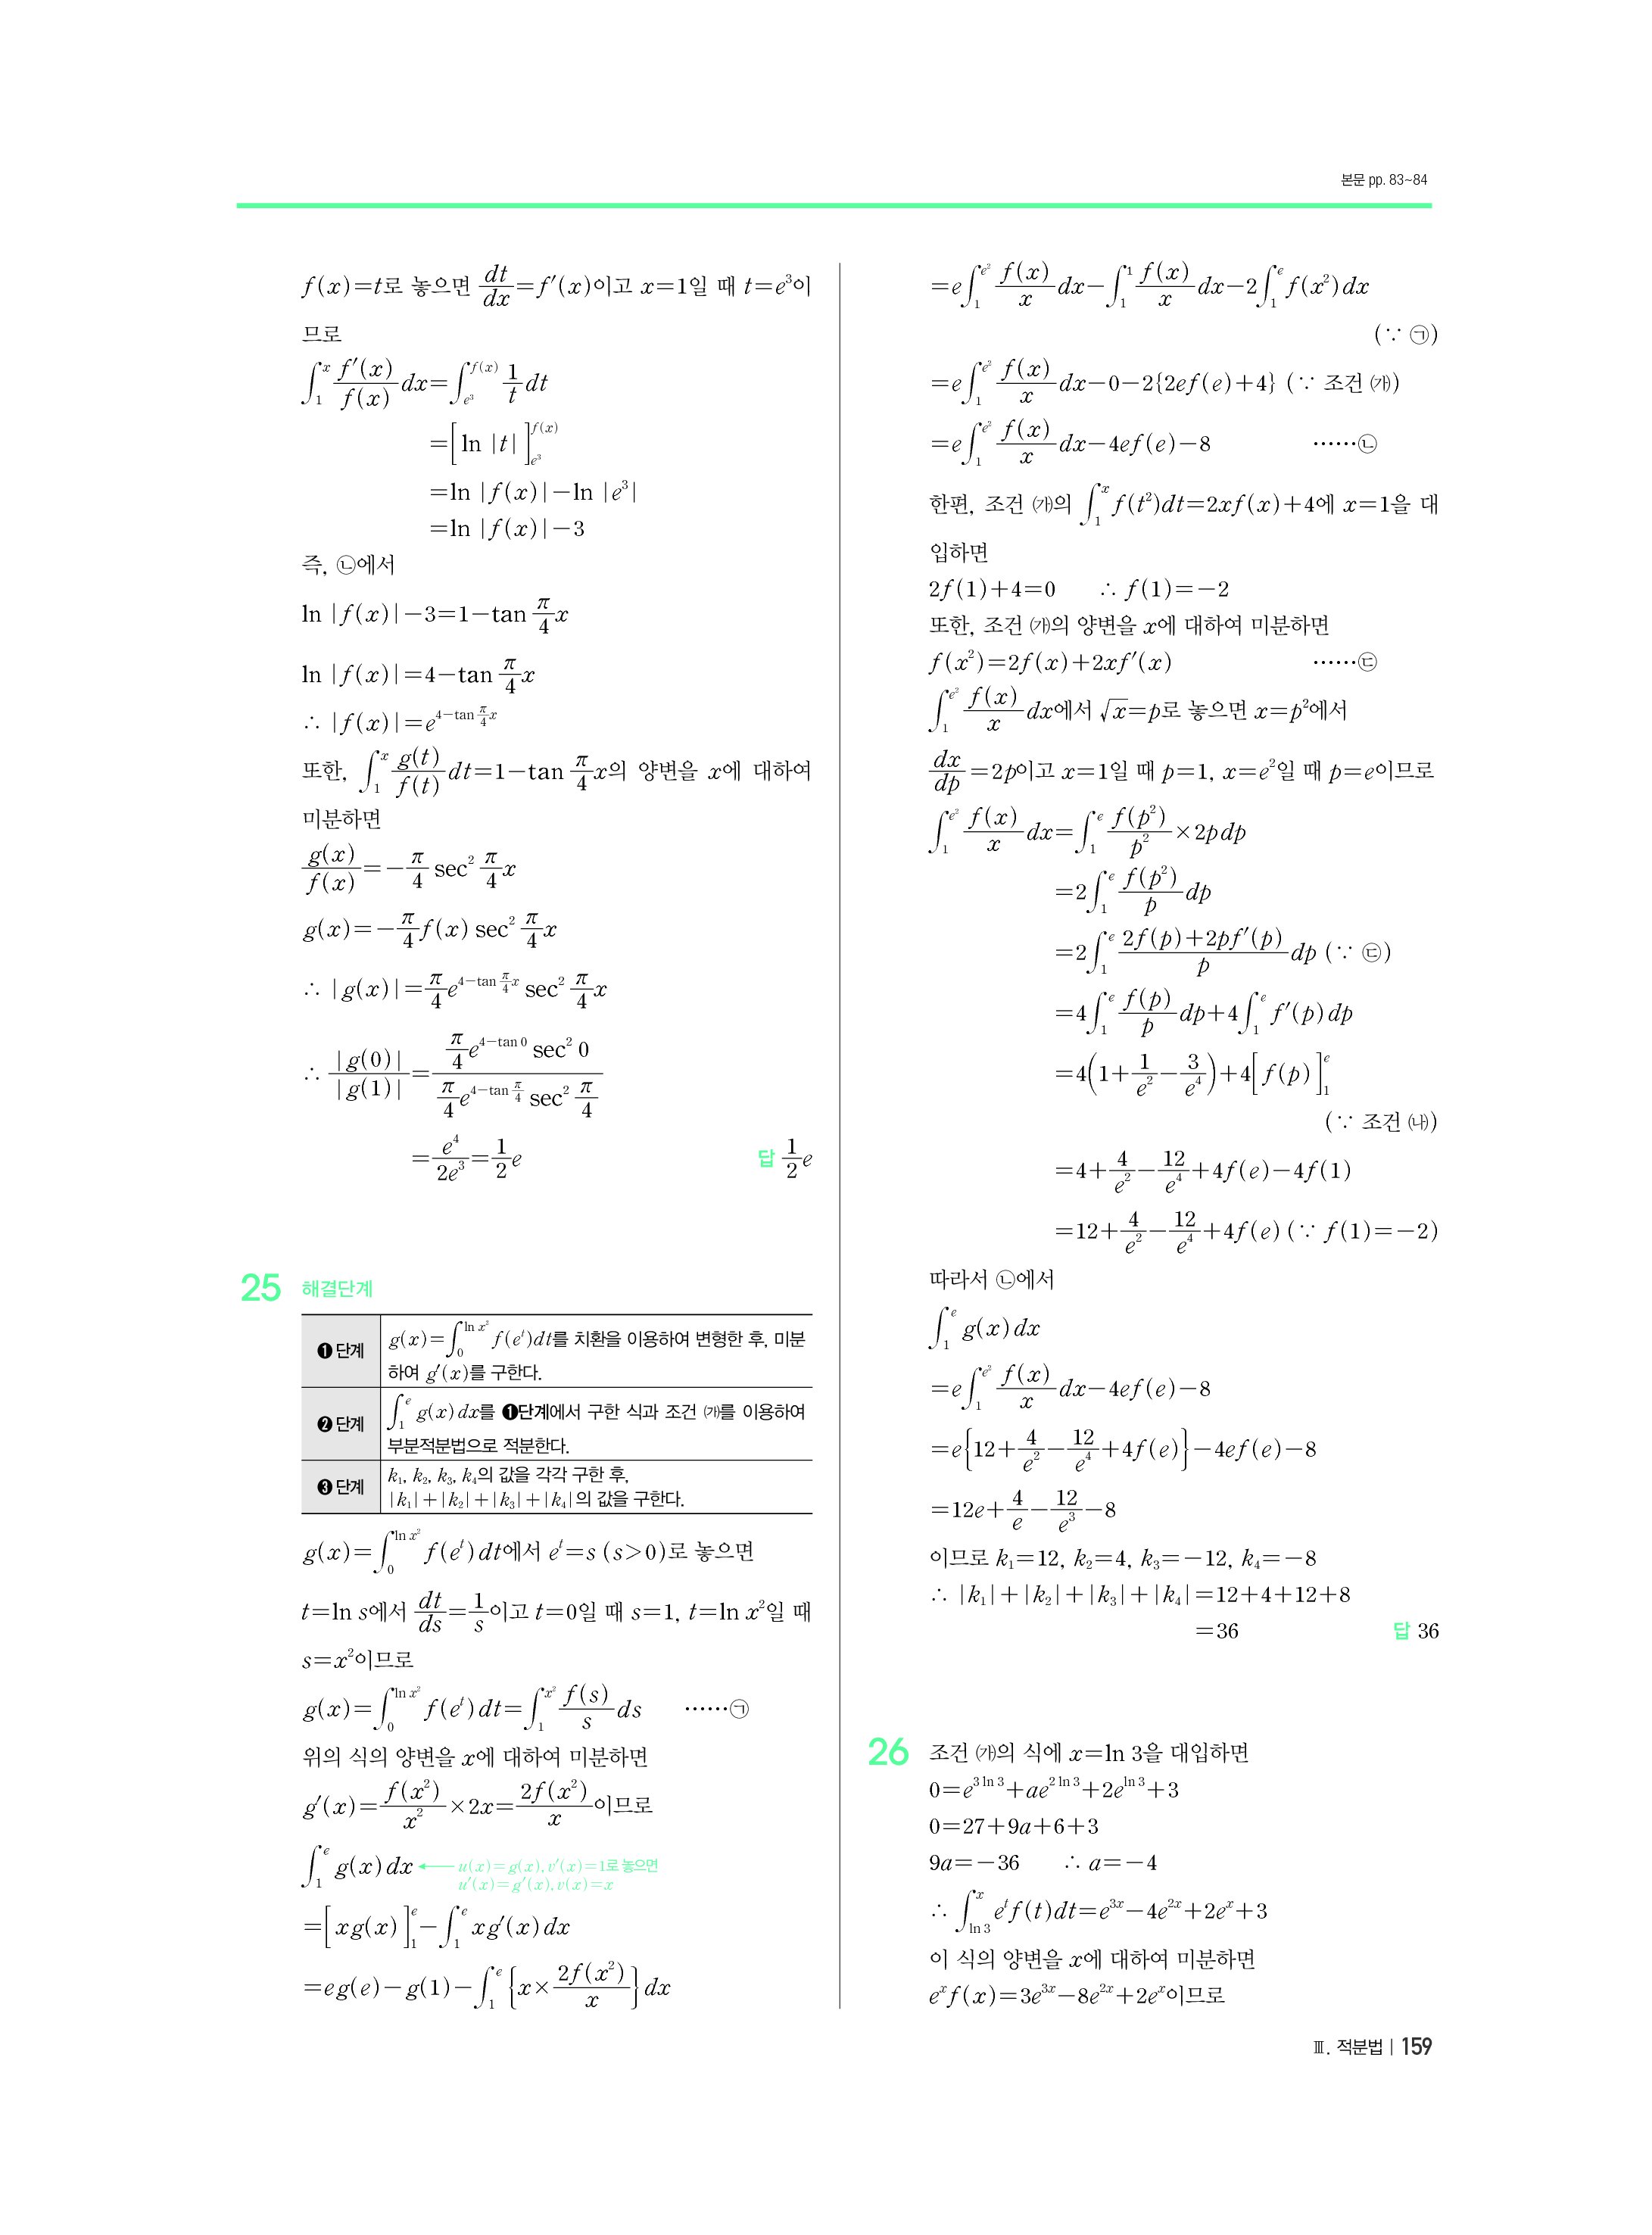 본문 pp. 83~84
f(x)=t로 놓으면 dt/dx=f′(x)이고 x=1일 때 t=e³이
므로
∫₁ˣ f′(x)/f(x) dx=∫_{e³}^{f(x)} 1/t dt
=[ln |t|]_{e³}^{f(x)}
=ln |f(x)|−ln |e³|
=ln |f(x)|−3
즉, ㉡에서
ln |f(x)|−3=1−tan π/4 x
ln |f(x)|=4−tan π/4 x
∴ |f(x)|=e^{4−tan π/4 x}
또한, ∫₁ˣ g(t)/f(t) dt=1−tan π/4 x의 양변을 x에 대하여
미분하면
g(x)/f(x)=−π/4 sec² π/4 x
g(x)=−π/4 f(x) sec² π/4 x
∴ |g(x)|=π/4 e^{4−tan π/4 x} sec² π/4 x
∴ |g(0)|/|g(1)|=(π/4 e^{4−tan 0} sec² 0)/(π/4 e^{4−tan π/4} sec² π/4)
=e⁴/2e³=1/2 e 답 1/2 e
25 해결단계
❶단계 g(x)=∫₀^{ln x²} f(eᵗ)dt를 치환을 이용하여 변형한 후, 미분
하여 g′(x)를 구한다.
❷단계 ∫₁ᵉ g(x)dx를 ❶단계에서 구한 식과 조건 ㈎를 이용하여
부분적분법으로 적분한다.
❸단계 k₁, k₂, k₃, k₄의 값을 각각 구한 후,
|k₁|+|k₂|+|k₃|+|k₄|의 값을 구한다.
g(x)=∫₀^{ln x²} f(eᵗ)dt에서 eᵗ=s (s>0)로 놓으면
t=ln s에서 dt/ds=1/s이고 t=0일 때 s=1, t=ln x²일 때
s=x²이므로
g(x)=∫₀^{ln x²} f(eᵗ)dt=∫₁^{x²} f(s)/s ds ……㉠
위의 식의 양변을 x에 대하여 미분하면
g′(x)=f(x²)/x²×2x=2f(x²)/x이므로
∫₁ᵉ g(x)dx ← u(x)=g(x), v′(x)=1로 놓으면
u′(x)=g′(x), v(x)=x
=[xg(x)]₁ᵉ−∫₁ᵉ xg′(x)dx
=eg(e)−g(1)−∫₁ᵉ {x×2f(x²)/x}dx
=e∫₁^{e²} f(x)/x dx−∫₁¹ f(x)/x dx−2∫₁ᵉ f(x²)dx
(∵ ㉠)
=e∫₁^{e²} f(x)/x dx−0−2{2ef(e)+4} (∵ 조건 ㈎)
=e∫₁^{e²} f(x)/x dx−4ef(e)−8 ……㉡
한편, 조건 ㈎의 ∫₁ˣ f(t²)dt=2xf(x)+4에 x=1을 대
입하면
2f(1)+4=0 ∴ f(1)=−2
또한, 조건 ㈎의 양변을 x에 대하여 미분하면
f(x²)=2f(x)+2xf′(x) ……㉢
∫₁^{e²} f(x)/x dx에서 √x=p로 놓으면 x=p²에서
dx/dp=2p이고 x=1일 때 p=1, x=e²일 때 p=e이므로
∫₁^{e²} f(x)/x dx=∫₁ᵉ f(p²)/p²×2pdp
=2∫₁ᵉ f(p²)/p dp
=2∫₁ᵉ (2f(p)+2pf′(p))/p dp (∵ ㉢)
=4∫₁ᵉ f(p)/p dp+4∫₁ᵉ f′(p)dp
=4(1+1/e²−3/e⁴)+4[f(p)]₁ᵉ
(∵ 조건 ㈏)
=4+4/e²−12/e⁴+4f(e)−4f(1)
=12+4/e²−12/e⁴+4f(e) (∵ f(1)=−2)
따라서 ㉡에서
∫₁ᵉ g(x)dx
=e∫₁^{e²} f(x)/x dx−4ef(e)−8
=e{12+4/e²−12/e⁴+4f(e)}−4ef(e)−8
=12e+4/e−12/e³−8
이므로 k₁=12, k₂=4, k₃=−12, k₄=−8
∴ |k₁|+|k₂|+|k₃|+|k₄|=12+4+12+8
=36 답 36
26 조건 ㈎의 식에 x=ln 3을 대입하면
0=e^{3 ln 3}+ae^{2 ln 3}+2e^{ln 3}+3
0=27+9a+6+3
9a=−36 ∴ a=−4
∴ ∫_{ln 3}^x eᵗf(t)dt=e^{3x}−4e^{2x}+2eˣ+3
이 식의 양변을 x에 대하여 미분하면
eˣf(x)=3e^{3x}−8e^{2x}+2eˣ이므로
Ⅲ. 적분법 | 159